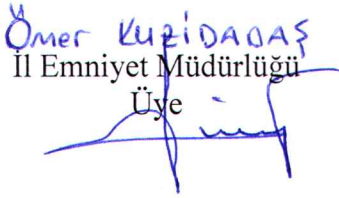 Ömer KUZİDADAŞ
İl Emniyet Müdürlüğü
Üye